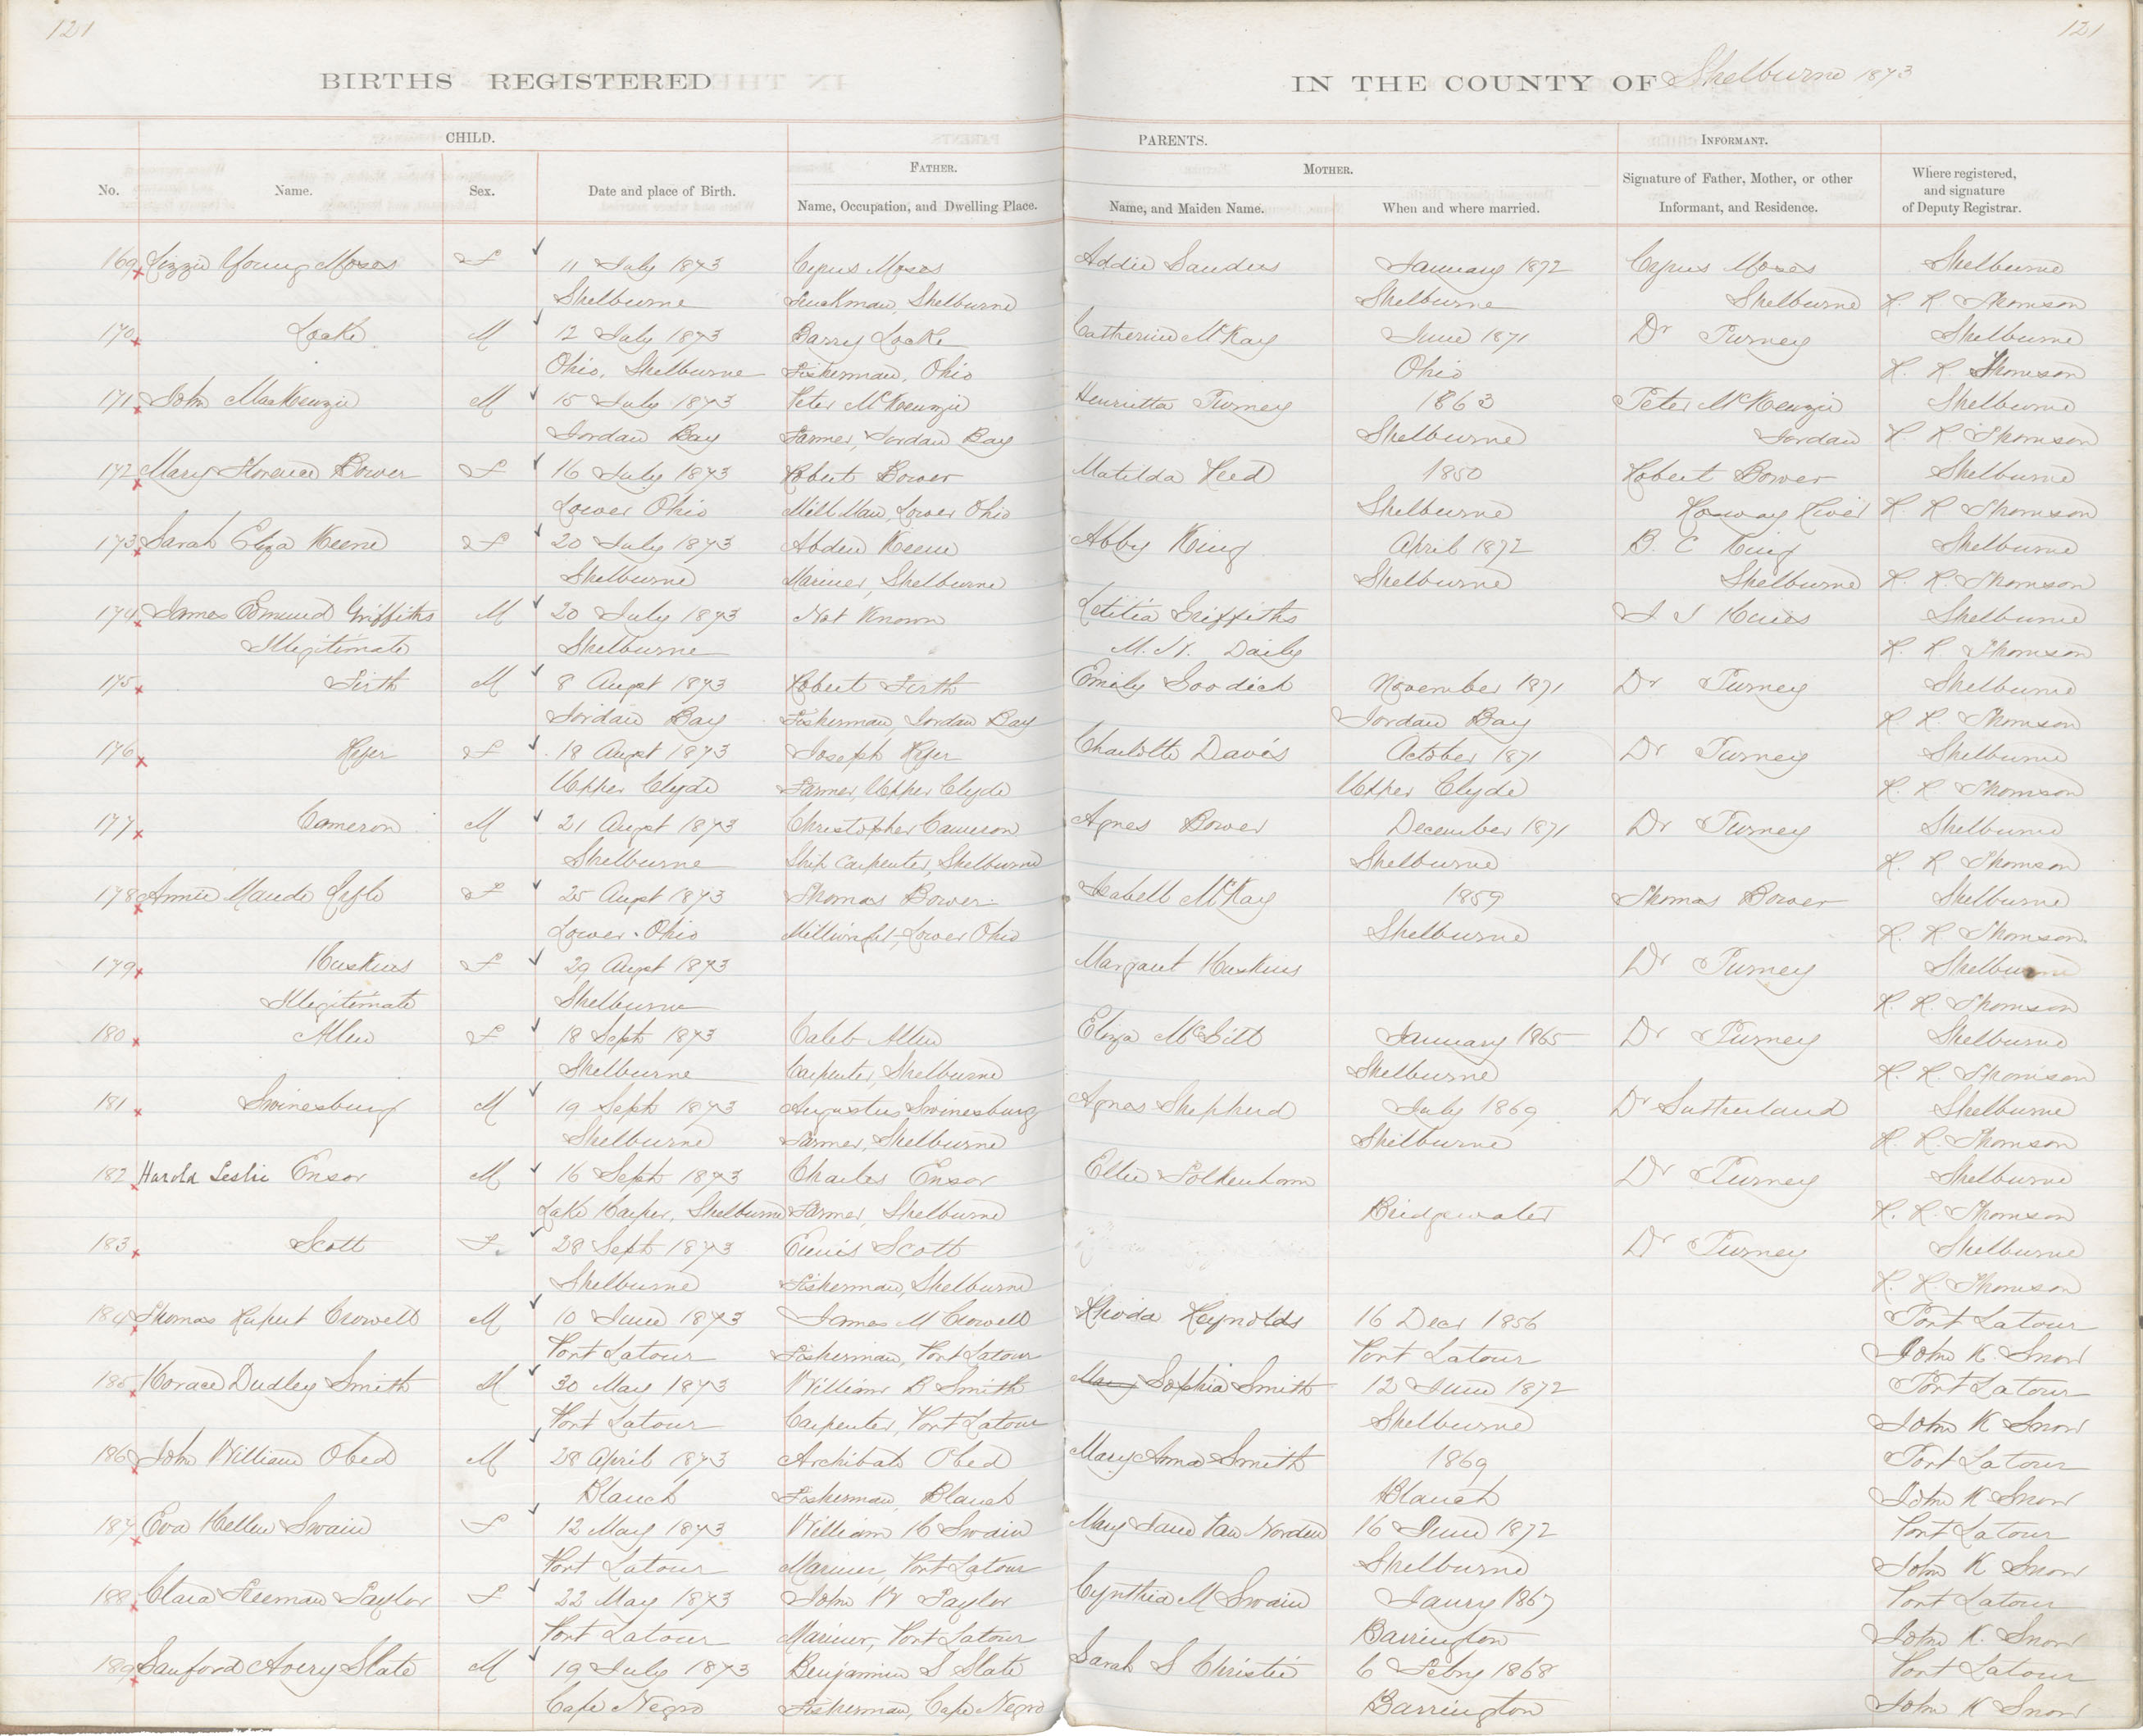 121
121
BIRTHS REGISTERED
IN THE COUNTY OF Shelburne 1873
CHILD.
PARENTS.
INFORMANT.
No.
Name.
Sex.
Date and place of Birth.
FATHER.
Name, Occupation, and Dwelling Place.
MOTHER.
Name, and Maiden Name.
When and where married.
Signature of Father, Mother, or other
Informant, and Residence.
Where registered,
and signature
of Deputy Registrar.
169 Lizzie Young Moses F 11 July 1873 Cyrus Moses Addie Sanders January 1872 Cyrus Moses Shelburne
Shelburne Truckman, Shelburne Shelburne Shelburne R. R. Thomson
170 Locke M 12 July 1873 Barry Locke Catherine McKay June 1871 Dr Turney Shelburne
Ohio, Shelburne Fisherman, Ohio Ohio R. R. Thomson
171 John MacKenzie M 15 July 1873 Peter McKenzie Henrietta Turney 1863 Peter McKenzie Shelburne
Jordan Bay Farmer, Jordan Bay Shelburne Jordan R. R. Thomson
172 Mary Florence Bower F 16 July 1873 Robert Bower Matilda Reed 1850 Robert Bower Shelburne
Lower Ohio Mill Man, Lower Ohio Shelburne Roseway River R R Thomson
173 Sarah Eliza Keene F 20 July 1873 Abden Keene Abby King April 1872 B. C King Shelburne
Shelburne Mariner, Shelburne Shelburne Shelburne R. R. Thomson
174 James Edmund Griffiths M 20 July 1873 Not Known Letitia Griffiths Shelburne
Illegitimate Shelburne M. N. Daily R. R. Thomson
175 Firth M 8 Augst 1873 Robert Firth Emily Goodick November 1871 Dr Turney Shelburne
Jordan Bay Fisherman, Jordan Bay Jordan Bay R. R. Thomson
176 F 18 Augst 1873 Joseph Charlotte Davis October 1871 Dr Turney Shelburne
Upper Clyde Farmer, Upper Clyde Upper Clyde R. R. Thomson
177 Cameron M 21 Augst 1873 Christopher Cameron Agnes Bower December 1871 Dr Turney Shelburne
Shelburne Ship Carpenter, Shelburne Shelburne R. R Thomson
178 Annie Maude F 25 Augst 1873 Thomas Bower Isabell McKay 1859 Thomas Bower Shelburne
Lower Ohio Lower Ohio Shelburne R. R Thomson
179 Huskins F 29 Augst 1873 Margaret Huskins Dr Turney Shelburne
Illegitimate Shelburne R. R. Thomson
180 Allen F 18 Sept 1873 Caleb Allen Eliza McGill January 1865 Dr Turney Shelburne
Shelburne Carpenter, Shelburne Shelburne R. R. Thomson
181 Swinesburg M 19 Sept 1873 Augustus Swinesburg Agnes Shepherd July 1869 Dr Sutherland Shelburne
Shelburne Farmer, Shelburne Shelburne R. R. Thomson
182 Harold Leslie Ensor M 16 Sept 1873 Charles Ensor Ellie Dr Turney Shelburne
Lake Shelburne Farmer, Shelburne Bridgewater R. R. Thomson
183 Scott F. 28 Sept 1873 Scott Dr Turney Shelburne
Shelburne Fisherman, Shelburne R. R. Thomson
184 Thomas Rupert Crowell M 10 June 1873 James M Crowell Rhoda Reynolds 16 Decr 1856 Port Latour
Port Latour Fisherman, Port Latour Port Latour John K. Snow
185 Horace Dudley Smith M 30 May 1873 William B Smith Mary Sophia Smith 12 June 1872 Port Latour
Port Latour Carpenter, Port Latour Shelburne John K Snow
186 John William Obed M 28 April 1873 Archibald Obed Mary Anna Smith 1869 Port Latour
Blanch Fisherman, Blanch Blanch John K Snow
187 Eva Hellen Swain F 12 May 1873 William H Swain Mary Jane Van Norden 16 June 1872 Port Latour
Port Latour Mariner, Port Latour Shelburne John K Snow
188 Clara Freeman Taylor F 22 May 1873 John W Taylor Cynthia M Swain Janry 1867 Port Latour
Port Latour Mariner, Port Latour Barrington John K. Snow
189 Sanford Avery Slate M 19 July 1873 Benjamin S Slate Sarah S Christie 6 Febry 1868 Port Latour
Cape Negro Fisherman, Cape Negro Barrington John K Snow